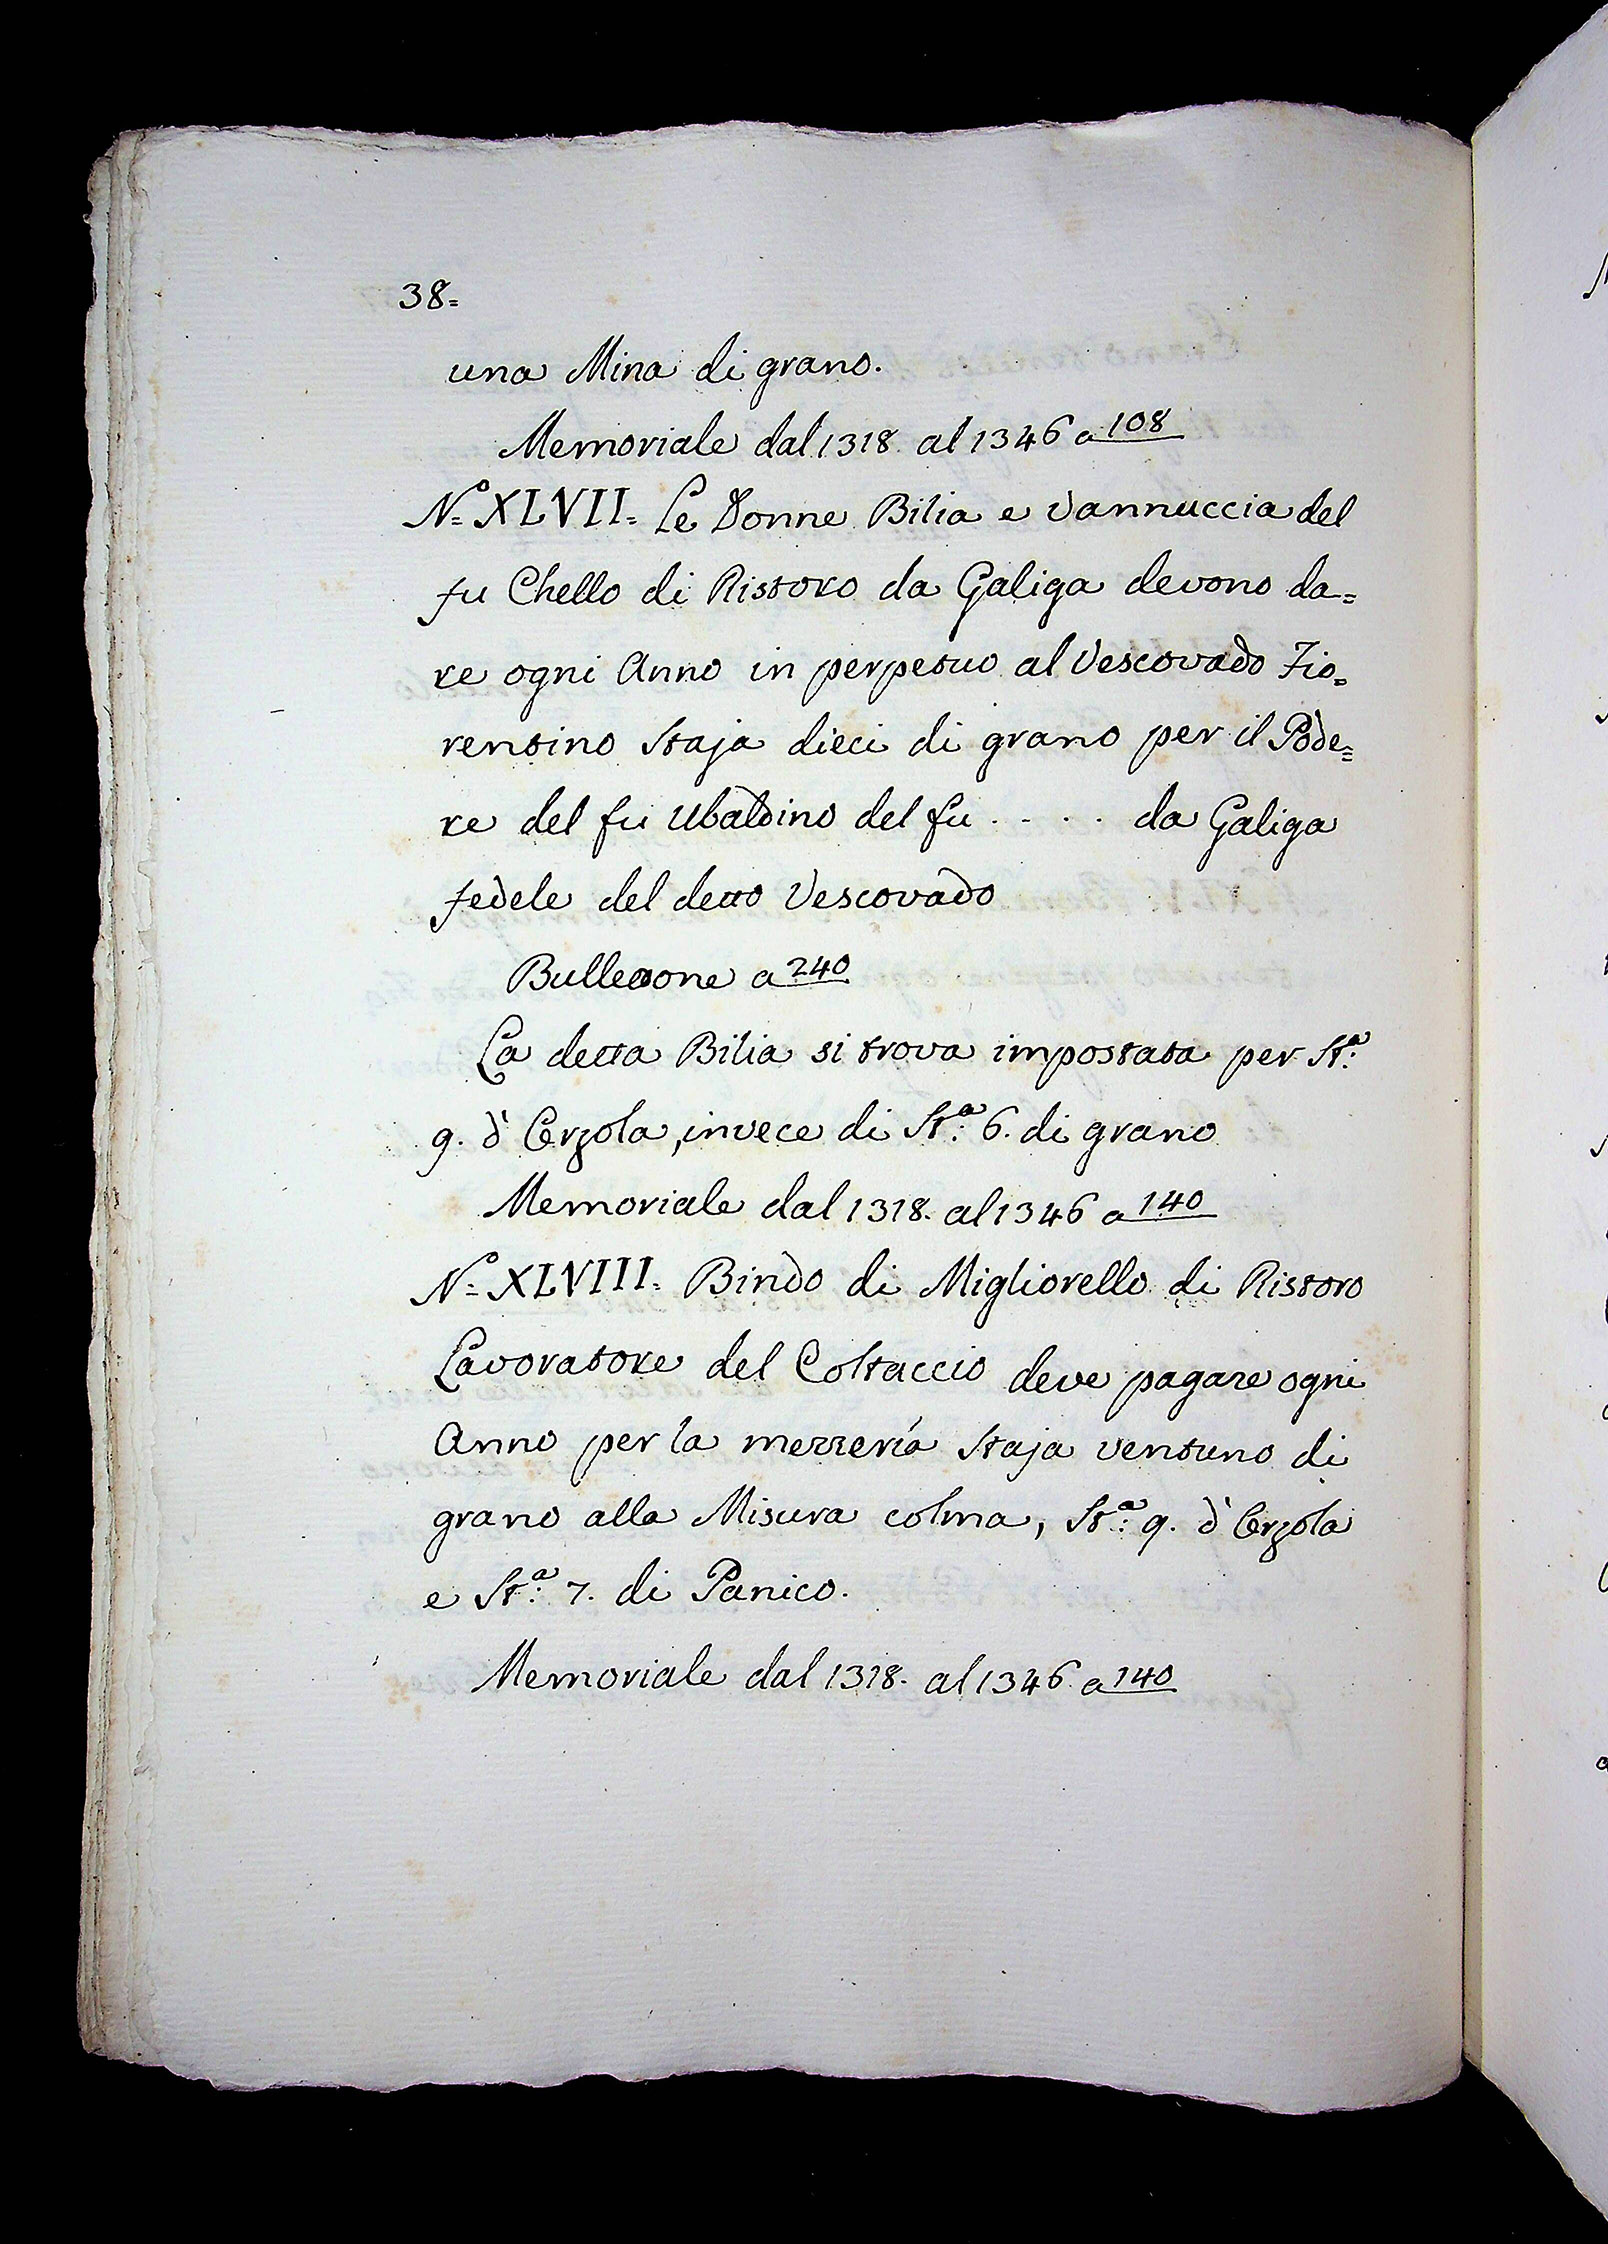 38=
una Mina di grano.
Memoriale dal 1318. al 1346 a 108
N.º XLVII= Le Donne Bilia e Vannuccia del
fu Chello di Ristoro da Galiga devono da=
re ogni Anno in perpetuo al Vescovado Fio=
rentino Staja dieci di grano per il Pode=
re del fu Ubaldino del fu . . . . da Galiga
fedele del detto Vescovado
Bullettone a 240
La detta Bilia si trova impostata per St.ª
9. d'Orzola, invece di St.ª 6. di grano
Memoriale dal 1318. al 1346 a 140
N.º XLVIII= Bindo di Migliorello di Ristoro
Lavoratore del Coltaccio deve pagare ogni
Anno per la mezzería Staja ventuno di
grano alla Misura colma, St.ª 9. d'Orzola
e St.ª 7. di Panico.
Memoriale dal 1318. al 1346 a 140